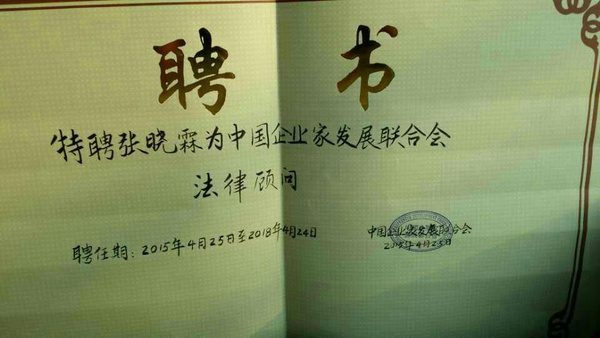 聘书
特聘张晓霖为中国企业家发展联合会
法律顾问
聘任期：2015年4月25日至2018年4月24日
中国企业家发展联合会
2015年4月25日